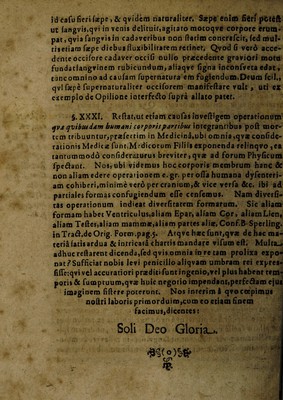 id casu fieri sæpe, & qvidem naturaliter. Sæpe enim fieri potest
ut sangvis, qvi in venis delituit, agitato motoqve corpore erum-
pat, qvia sangvis in cadaveribus non statim concrescit, sed mul-
tis etiam sæpe diebus fluxibilitatem retinet, Qvod si verò acce-
dente occisore cadaver occisi nullo præcedente graviori motu
fundat sangvinem rubicundum, aliaqve signa inconsveta edat,
eanc omnino ad causam supernaturæm fugiendum. Deum scil.,
qvi sæpè supernaturaliter occisorem manifestare vult, uti ex
exemplo de Opilione interfecto suprà allato patet.
§. XXXI. Restat, ut etiam causas investigem operationum
qva quibusdam humani corporis partibus integrantibus post mor-
tem tribuuntur, præsertim in Medicinâ, ubi omnia, qvæ conside-
rationis Medicæ sunt, Medicorum Filiis exponenda relinqvo, ea
tantummodò consideraturus breviter, qvæ ad forum Physicum
spectant. Nos, ubi videmus hoc corporis membrum hanc &
non aliam edere operationem e. gr. per ossa humana dysenteri-
am cohiberi, minimè verò per cranium, & vice versa &c. ibi ad
partiales formas confugiendum esse censemus. Nam diversi-
tas operationum indicat diversitatem formarum. Sic aliam
formam habet Ventriculus, aliam Epar, aliam Cor, aliam Lien,
aliam Testes, aliam mammæ, aliam partes aliæ. Conf. B. Sperling.
in Tract, de Orig. Form. pag. 5. Atqve hæc sunt, qvæ de hac ma-
teriâ satis ardua & intricatâ chartis mandare visum est. Multa
adhuc restarent dicenda, sed qvis omnia in re tam prolixa expo-
nat? Sufficiat nobis levi penicillo aliqvam umbram rei expres-
sisse: qvi vel accuratiori præditi sunt ingenio, vel plus habent tem-
poris & sumptuum, qvæ huic negotio impendant, perfectam ejus
imaginem sistere poterunt. Nos interim à qvo cœpimus
nostri laboris primordium, cum eo etiam finem
facimus, dicentes:
Soli Deo Gloria.
(o)